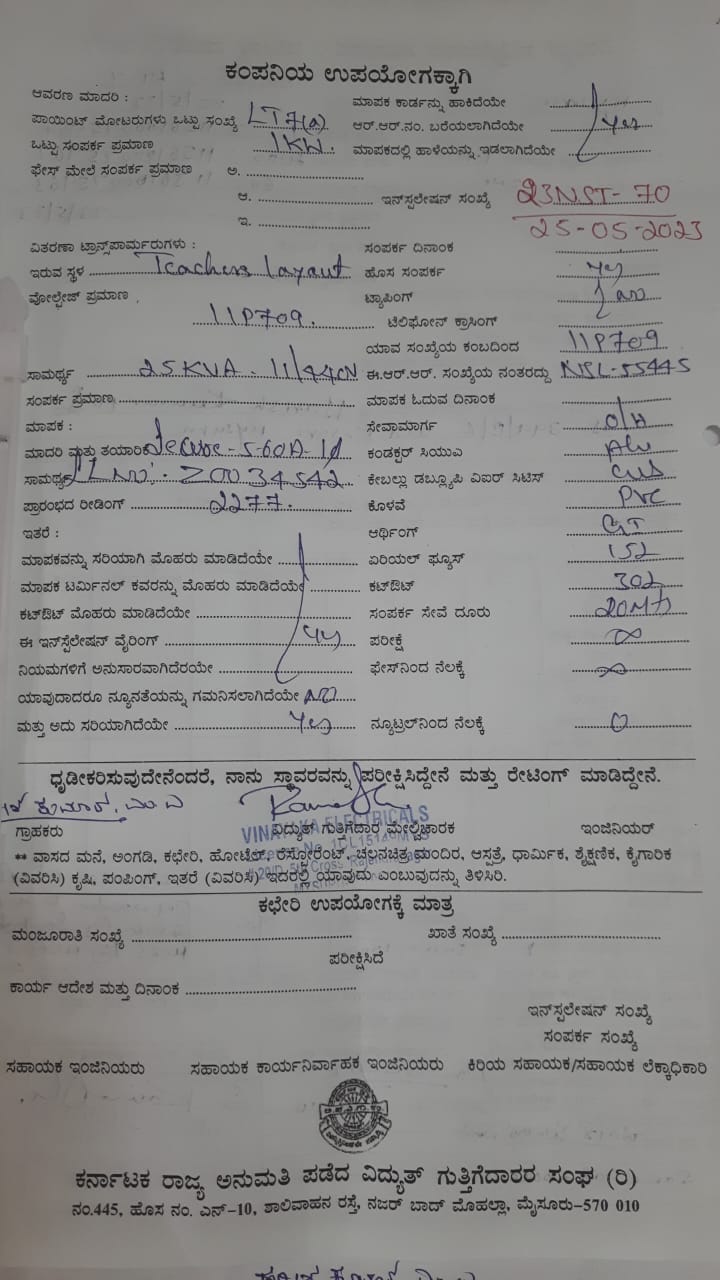 ಕಂಪನಿಯ ಉಪಯೋಗಕ್ಕಾಗಿ
ಆವರಣ ಮಾದರಿ : ಮಾಪಕ ಕಾರ್ಡನ್ನು ಹಾಕಿದೆಯೇ
ಪಾಯಿಂಟ್ ಮೋಟರುಗಳು ಒಟ್ಟು ಸಂಖ್ಯೆ LT7(a) ಆರ್.ಆರ್.ನಂ. ಬರೆಯಲಾಗಿದೆಯೇ yes
ಒಟ್ಟು ಸಂಪರ್ಕ ಪ್ರಮಾಣ 1KW. ಮಾಪಕದಲ್ಲಿ ಹಾಳೆಯನ್ನು ಇಡಲಾಗಿದೆಯೇ
ಫೇಸ್ ಮೇಲೆ ಸಂಪರ್ಕ ಪ್ರಮಾಣ ಅ.
ಆ. ಇನ್‌ಸ್ಟಲೇಷನ್ ಸಂಖ್ಯೆ 23NST-70
ಇ. 25-05-2023
ವಿತರಣಾ ಟ್ರಾನ್ಸ್‌ಪಾರ್ಮರುಗಳು : ಸಂಪರ್ಕ ದಿನಾಂಕ
ಇರುವ ಸ್ಥಳ Teachers Layaut ಹೊಸ ಸಂಪರ್ಕ yes
ವೋಲ್ಟೇಜ್ ಪ್ರಮಾಣ ಟ್ಯಾಪಿಂಗ್
11P709. ಟೆಲಿಫೋನ್ ಕ್ರಾಸಿಂಗ್
ಯಾವ ಸಂಖ್ಯೆಯ ಕಂಬದಿಂದ 11P709
ಸಾಮರ್ಥ್ಯ 25KVA. ಈ.ಆರ್.ಆರ್. ಸಂಖ್ಯೆಯ ನಂತರದ್ದು NSL-55445
ಸಂಪರ್ಕ ಪ್ರಮಾಣ ಮಾಪಕ ಓದುವ ದಿನಾಂಕ
ಮಾಪಕ : ಸೇವಾಮಾರ್ಗ O/H
ಮಾದರಿ ಮತ್ತು ತಯಾರಿ Secure-5-60A- ಕಂಡಕ್ಟರ್ ಸಿಯುಎ Alu
ಸಾಮರ್ಥ್ಯ Z0034542 ಕೇಬಲ್ಲು ಡಬ್ಲ್ಯೂಪಿ ವಿಐರ್ ಸಿಟಿಸ್
ಪ್ರಾರಂಭದ ರೀಡಿಂಗ್ 2277. ಕೊಳವೆ PVC
ಇತರೆ : ಆರ್ಥಿಂಗ್ GI
ಮಾಪಕವನ್ನು ಸರಿಯಾಗಿ ಮೊಹರು ಮಾಡಿದೆಯೇ ಏರಿಯಲ್ ಫ್ಯೂಸ್ 152
ಮಾಪಕ ಟರ್ಮಿನಲ್ ಕವರನ್ನು ಮೊಹರು ಮಾಡಿದೆಯೇ ಕಟ್‌ಔಟ್ 302
ಕಟ್‌ಔಟ್ ಮೊಹರು ಮಾಡಿದೆಯೇ ಸಂಪರ್ಕ ಸೇವೆ ದೂರು 20Mts
ಈ ಇನ್‌ಸ್ಟೆಲೇಷನ್ ವೈರಿಂಗ್ yes ಪರೀಕ್ಷೆ ∞
ನಿಯಮಗಳಿಗೆ ಅನುಸಾರವಾಗಿದೆರಯೇ ಫೇಸ್‌ನಿಂದ ನೆಲಕ್ಕೆ ∞
ಯಾವುದಾದರೂ ನ್ಯೂನತೆಯನ್ನು ಗಮನಿಸಲಾಗಿದೆಯೇ NO
ಮತ್ತು ಅದು ಸರಿಯಾಗಿದೆಯೇ Yes ನ್ಯೂಟ್ರಲ್‌ನಿಂದ ನೆಲಕ್ಕೆ 0
ಧೃಡೀಕರಿಸುವುದೇನೆಂದರೆ, ನಾನು ಸ್ಥಾವರವನ್ನು ಪರೀಕ್ಷಿಸಿದ್ದೇನೆ ಮತ್ತು ರೇಟಿಂಗ್ ಮಾಡಿದ್ದೇನೆ.
VINAYAKA ELECTRICALS
ಗ್ರಾಹಕರು ವಿದ್ಯುತ್ ಗುತ್ತಿಗೆದಾರ ಮೇಲ್ವಿಚಾರಕ ಇಂಜಿನಿಯರ್
** ವಾಸದ ಮನೆ, ಅಂಗಡಿ, ಕಛೇರಿ, ಹೋಟೆಲ್, ರೆಸ್ಟೋರೆಂಟ್, ಚಲನಚಿತ್ರ ಮಂದಿರ, ಆಸ್ಪತ್ರೆ, ಧಾರ್ಮಿಕ, ಶೈಕ್ಷಣಿಕ, ಕೈಗಾರಿಕ
(ವಿವರಿಸಿ) ಕೃಷಿ, ಪಂಪಿಂಗ್, ಇತರೆ (ವಿವರಿಸಿ) ಇದರಲ್ಲಿ ಯಾವುದು ಎಂಬುವುದನ್ನು ತಿಳಿಸಿರಿ.
ಕಛೇರಿ ಉಪಯೋಗಕ್ಕೆ ಮಾತ್ರ
ಮಂಜೂರಾತಿ ಸಂಖ್ಯೆ ಖಾತೆ ಸಂಖ್ಯೆ
ಪರೀಕ್ಷಿಸಿದೆ
ಕಾರ್ಯ ಆದೇಶ ಮತ್ತು ದಿನಾಂಕ
ಇನ್‌ಸ್ಟಲೇಷನ್ ಸಂಖ್ಯೆ
ಸಂಪರ್ಕ ಸಂಖ್ಯೆ
ಸಹಾಯಕ ಇಂಜಿನಿಯರು ಸಹಾಯಕ ಕಾರ್ಯನಿರ್ವಾಹಕ ಇಂಜಿನಿಯರು ಕಿರಿಯ ಸಹಾಯಕ/ಸಹಾಯಕ ಲೆಕ್ಕಾಧಿಕಾರಿ
ಕರ್ನಾಟಕ ರಾಜ್ಯ ಅನುಮತಿ ಪಡೆದ ವಿದ್ಯುತ್ ಗುತ್ತಿಗೆದಾರರ ಸಂಘ (ರಿ)
ನಂ.445, ಹೊಸ ನಂ. ಎನ್-10, ಶಾಲಿವಾಹನ ರಸ್ತೆ, ನಜರ್ ಬಾದ್ ಮೊಹಲ್ಲಾ, ಮೈಸೂರು-570 010